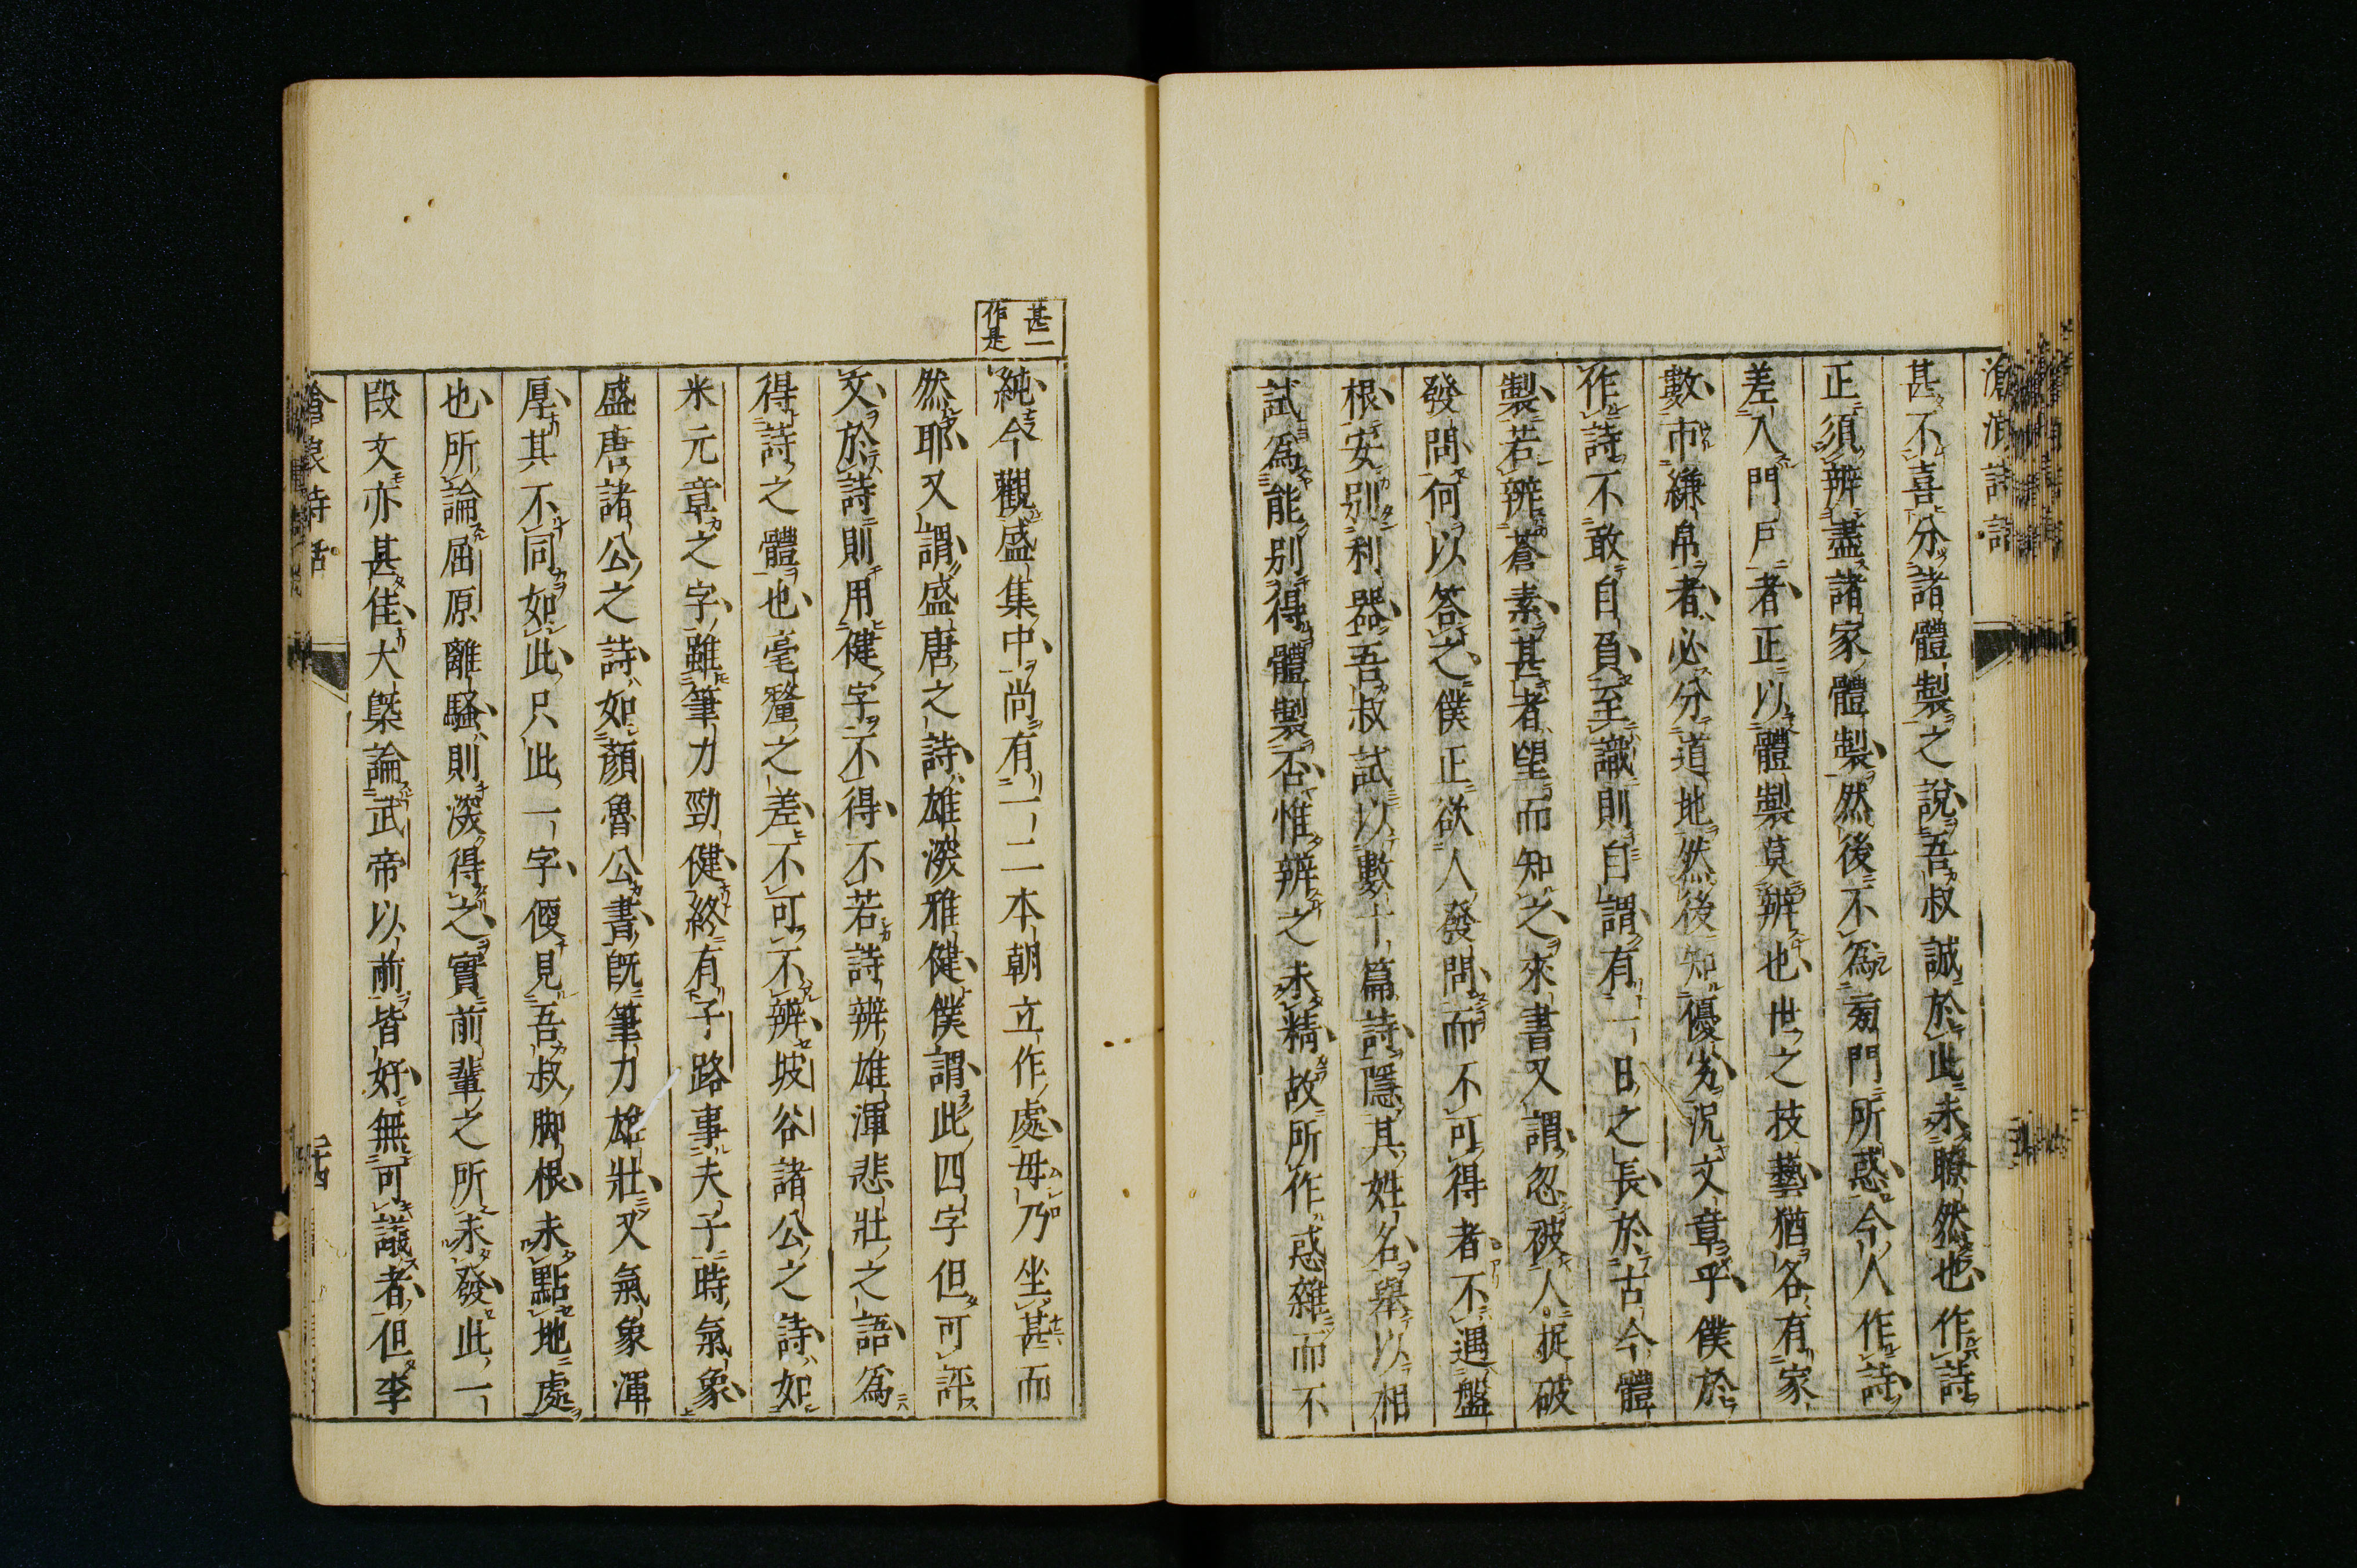 滄浪詩話
甚不喜分諸體製之說吾叔誠於此未瞭然也作詩
正須辨盡諸家體製然後不爲旁門所惑今人作詩
差入門戶者正以體製莫辨也世之技藝猶各有家
數市縑帛者必分道地然後知優劣況文章乎僕於
作詩不敢自負至識則自謂有一日之長於古今體
製若辨蒼素甚者望而知之來書又謂忽被人捉破
發問何以答之僕正欲人發問而不可得者不遇盤
根安別利器吾叔試以數十篇詩隱其姓名舉以相
試爲能別得體製否惟辨之未精故所作惑雜而不
甚一
作是
純今觀盛集中尚有一二本朝立作處毋乃坐甚而
然耶又謂盛唐之詩雄深雅健僕謂此四字但可評
文於詩則用健字不得不若詩辨雄渾悲壯之語爲
得詩之體也毫釐之差不可不辨坡谷諸公之詩如
米元章之字雖筆力勁健終有子路事夫子時氣象
盛唐諸公之詩如顏魯公書既筆力雄壯又氣象渾
厚其不同如此只此一字便見吾叔脚根未點地處
也所論屈原離騷則深得之實前輩之所未發此一
段文亦甚佳大槩論武帝以前皆好無可議者但李
滄浪詩話